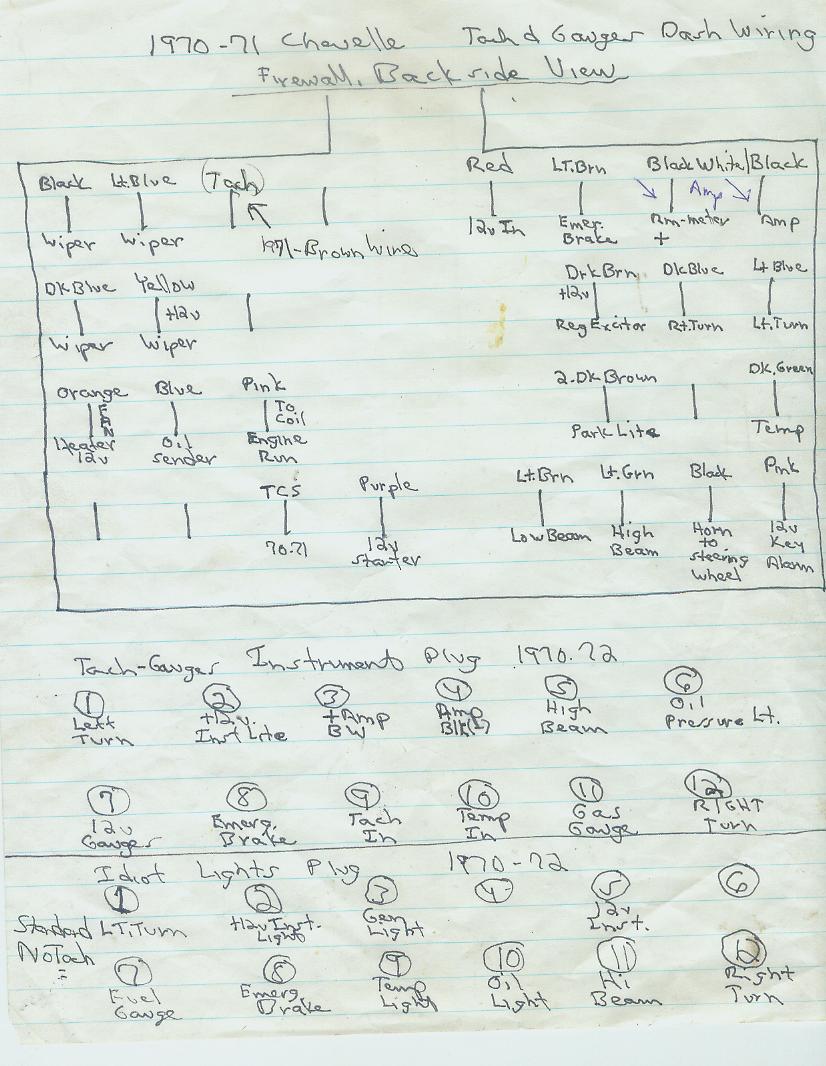 1970-71 Chevelle Tach & Gauges Dash Wiring
Firewall, Backside View
Black Lt.Blue Tach
Wiper Wiper 1971-Brown Wires
Red LT.Brn Black White/Black
Amp
12v In Emer. Brake Am-meter + Amp
DK.Blue Yellow
+12v
Wiper Wiper
Drk Brn DK.Blue Lt Blue
+12v
Reg Excitor Rt.Turn Lt.Turn
Orange Blue Pink
FAN To Coil
Heater 12v Oil Sender Engine Run
2.DK Brown DK.Green
Park Lite Temp
TCS Purple
70.71 12v Starter
Lt.Brn Lt.Grn Black Pink
Low Beam High Beam Horn to steering wheel 12v Key Alarm
Tach-Gauges Instrument Plug 1970-72
1 2 3 4 5 6
Left Turn +12v. Inst Lite +Amp BW Amp Blk(-) High Beam Oil Pressure Lt.
7 8 9 10 11 12
12v Gauges Emerg. Brake Tach In Temp In Gas Gauge RIGHT Turn
Idiot Lights Plug 1970-72
1 2 3 4 5 6
Standard LT.Turn +12v Inst. Light Gen Light 12v Inst.
No Tach =
7 8 9 10 11 12
Fuel Gauge Emerg. Brake Temp Light Oil Light Hi Beam Right Turn